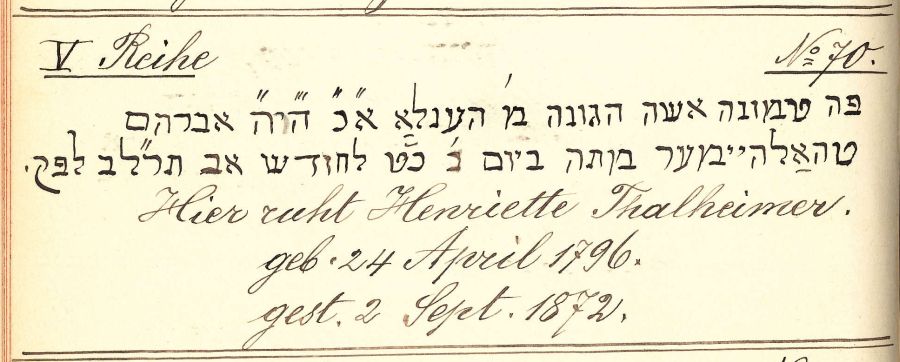 V Reihe № 70.
פה טמונה אשה הגונה מ' הענלאַ א״כ אברהם
טהאַלהיימער מתה ביום ב' כ״ט לחודש אב תר״לב לפק.
Hier ruht Henriette Thalheimer.
geb. 24 April 1796.
gest. 2 Sept. 1872.